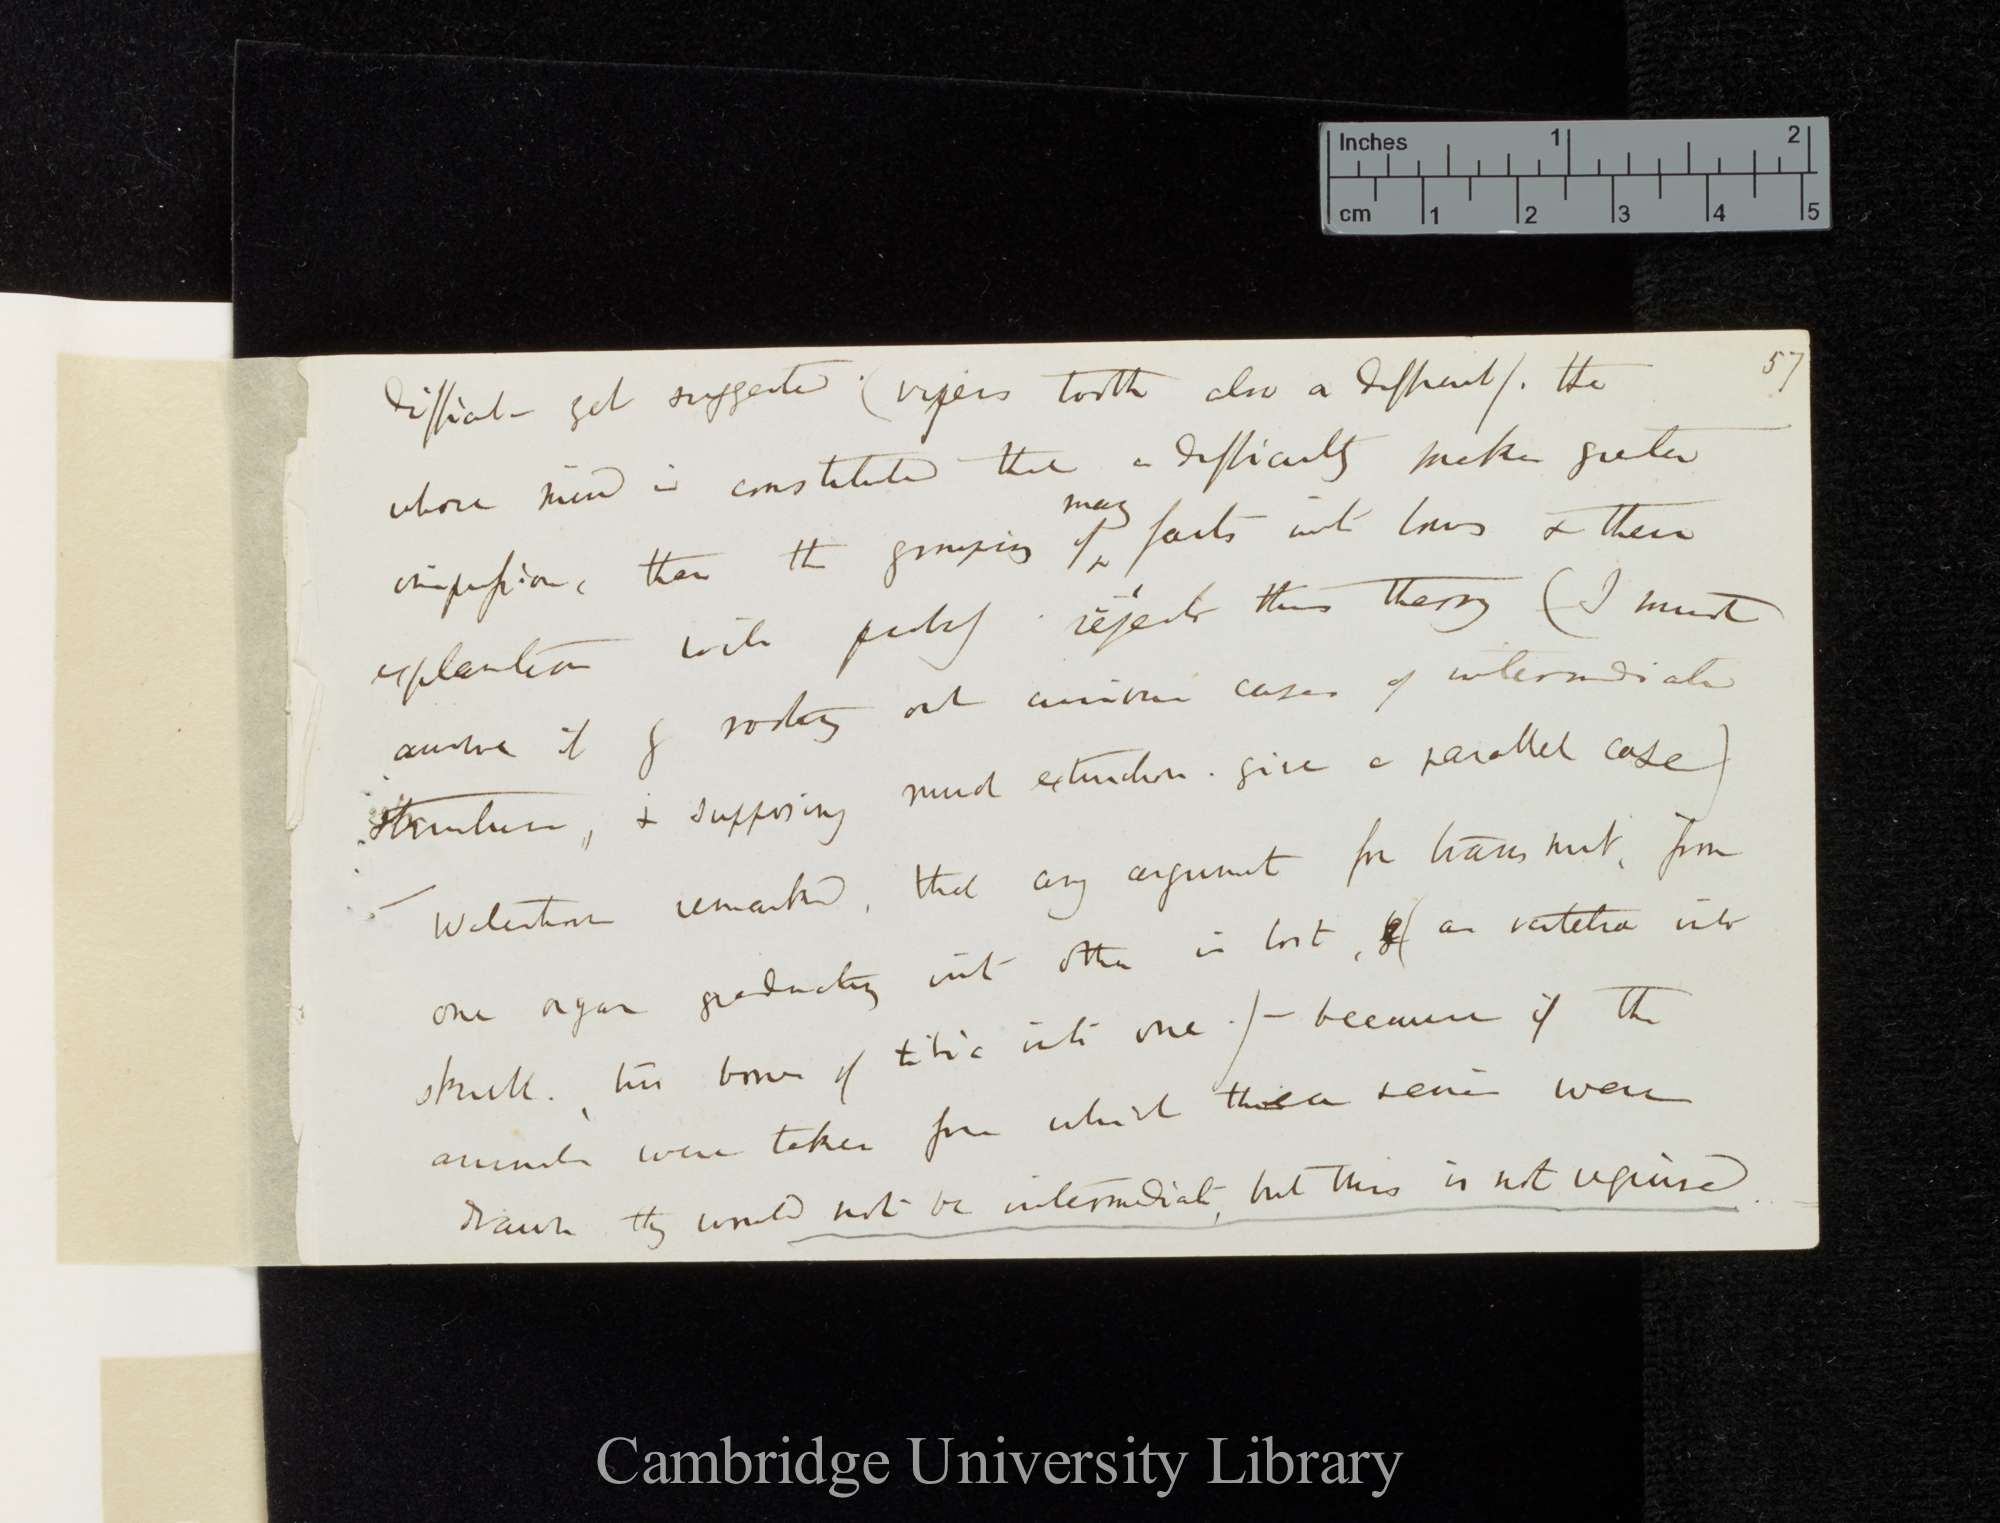 57
difficult yet suggested (vipers tooth also a difficult). the
whose mind is constituted that a difficulty makes greater
impression, than the grouping of
may
facts into laws & their
explanation will probably reject this theory (I must
answer it by rooting out curious cases of intermediate
structure, & supposing much extinction. give a parallel case)
— Waterhouse remarked, that any argument for transmut, from
one organ graduating into other is lost, (as vertebra into
skull. two bones of tibia into one.)— because if the
animals were taken from which these series were
drawn they would not be intermediate, but this is not required.
Inches 1 2
cm 1 2 3 4 5
Cambridge University Library